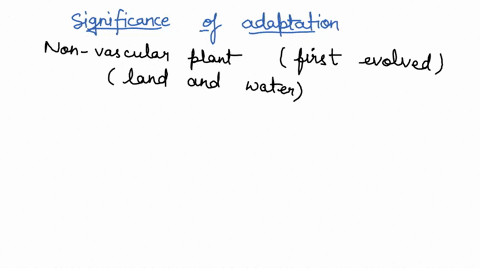 Significance of adaptation
Non-vascular plant (first evolved)
(land and water)